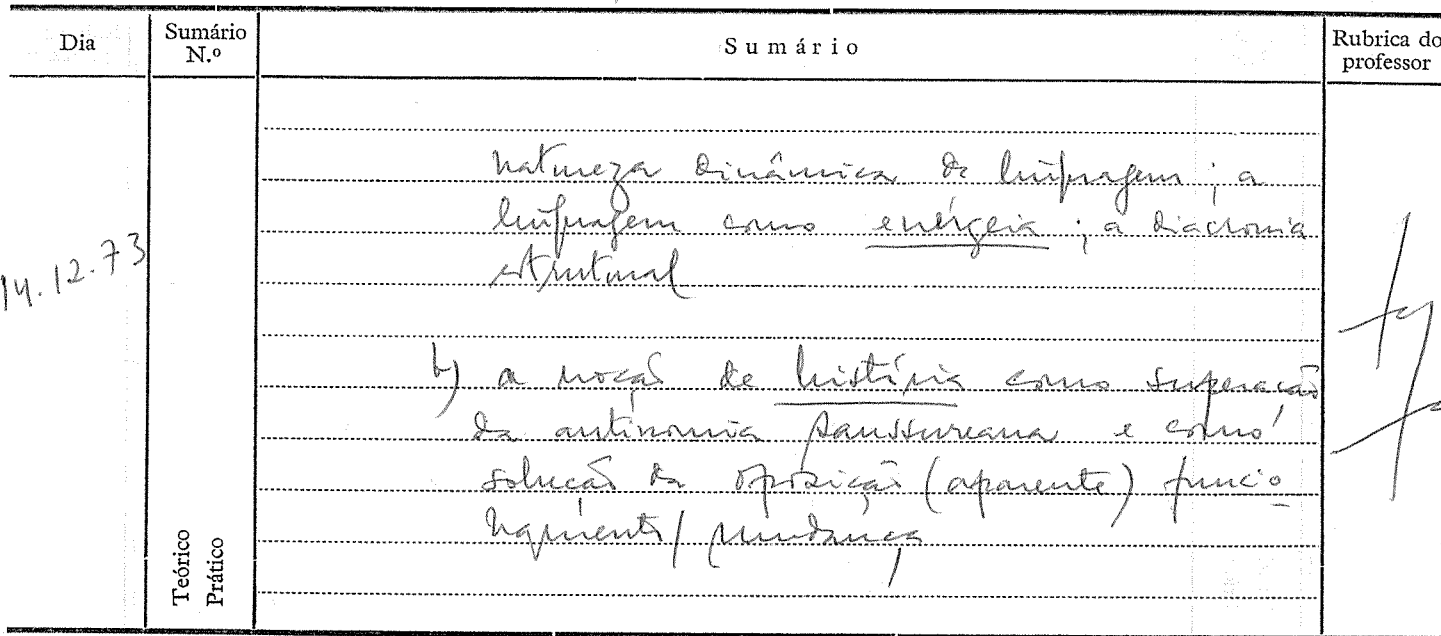 Dia
Sumário
N.º
Sumário
Rubrica do
professor
14.12.73
Teórico
Prático
natureza dinâmica da linguagem; a
linguagem como enérgeia; a diacronia
estrutural
b) a noção de história como superação
da antinomia saussureana e como
solução da oposição (aparente) funcio
namento/mudança